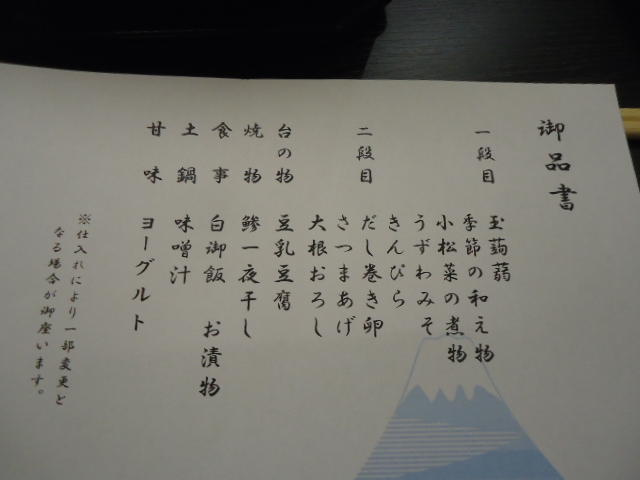 御品書
一段目 玉蒟蒻
季節の和え物
小松菜の煮物
うずわみそ
きんぴら
二段目 だし巻き卵
さつまあげ
大根おろし
台の物 豆乳豆腐
焼物 鯵一夜干し
食事 白御飯 お漬物
土鍋 味噌汁
甘味 ヨーグルト
※仕入れにより一部変更と
なる場合が御座います。